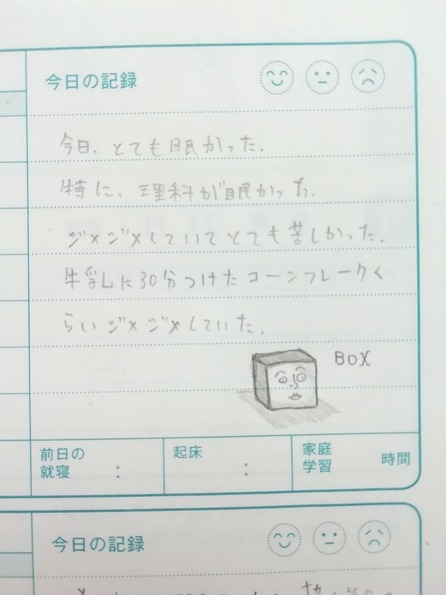 今日の記録
今日、とても眠かった.
特に、理科が眠かった.
ジメジメしていてとても苦しかった.
牛乳に30分つけたコーンフレークく
らいジメジメしていた.
BOX
前日の
就寝
:
起床
:
家庭
学習
時間
今日の記録